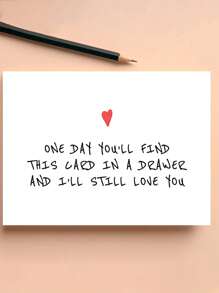 ONE DAY YOU'LL FIND
THIS CARD IN A DRAWER
AND I'LL STILL LOVE YOU